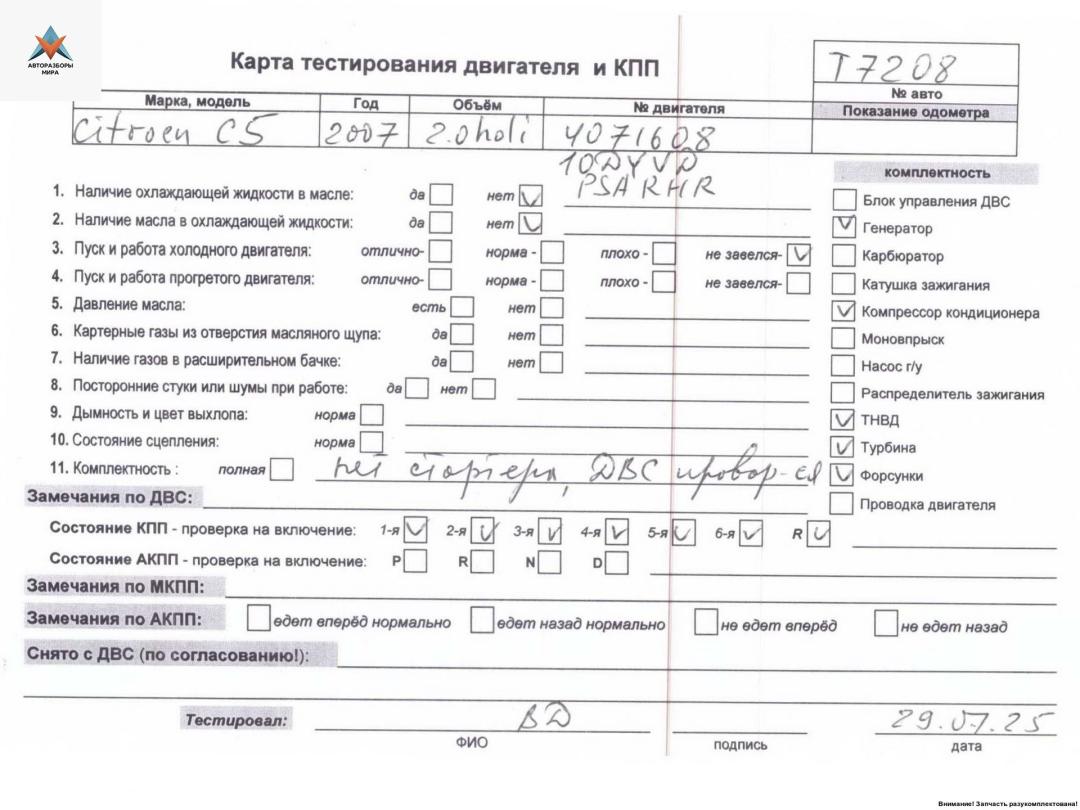 АВТОРАЗБОРЫ
МИРА
Карта тестирования двигателя и КПП
T7208
№ авто
Марка, модель Год Объём № двигателя Показание одометра
Citroen C5 2007 2.0hdi 4071608
10DYVD
PSA RHR
комплектность
1. Наличие охлаждающей жидкости в масле: да нет
Блок управления ДВС
2. Наличие масла в охлаждающей жидкости: да нет
Генератор
3. Пуск и работа холодного двигателя: отлично- норма - плохо - не завелся-
Карбюратор
4. Пуск и работа прогретого двигателя: отлично- норма - плохо - не завелся-
Катушка зажигания
5. Давление масла: есть нет
Компрессор кондиционера
6. Картерные газы из отверстия масляного щупа: да нет
Моновпрыск
7. Наличие газов в расширительном бачке: да нет
Насос г/у
8. Посторонние стуки или шумы при работе: да нет
Распределитель зажигания
9. Дымность и цвет выхлопа: норма
ТНВД
10. Состояние сцепления: норма
Турбина
11. Комплектность : полная нет стартера, ДВС провор-ся
Форсунки
Замечания по ДВС:
Проводка двигателя
Состояние КПП - проверка на включение: 1-я 2-я 3-я 4-я 5-я 6-я R
Состояние АКПП - проверка на включение: P R N D
Замечания по МКПП:
Замечания по АКПП: едет вперёд нормально едет назад нормально не едет вперёд не едет назад
Снято с ДВС (по согласованию!):
Тестировал: ВД 29.07.25
ФИО подпись дата
Внимание! Запчасть разукомплектована!